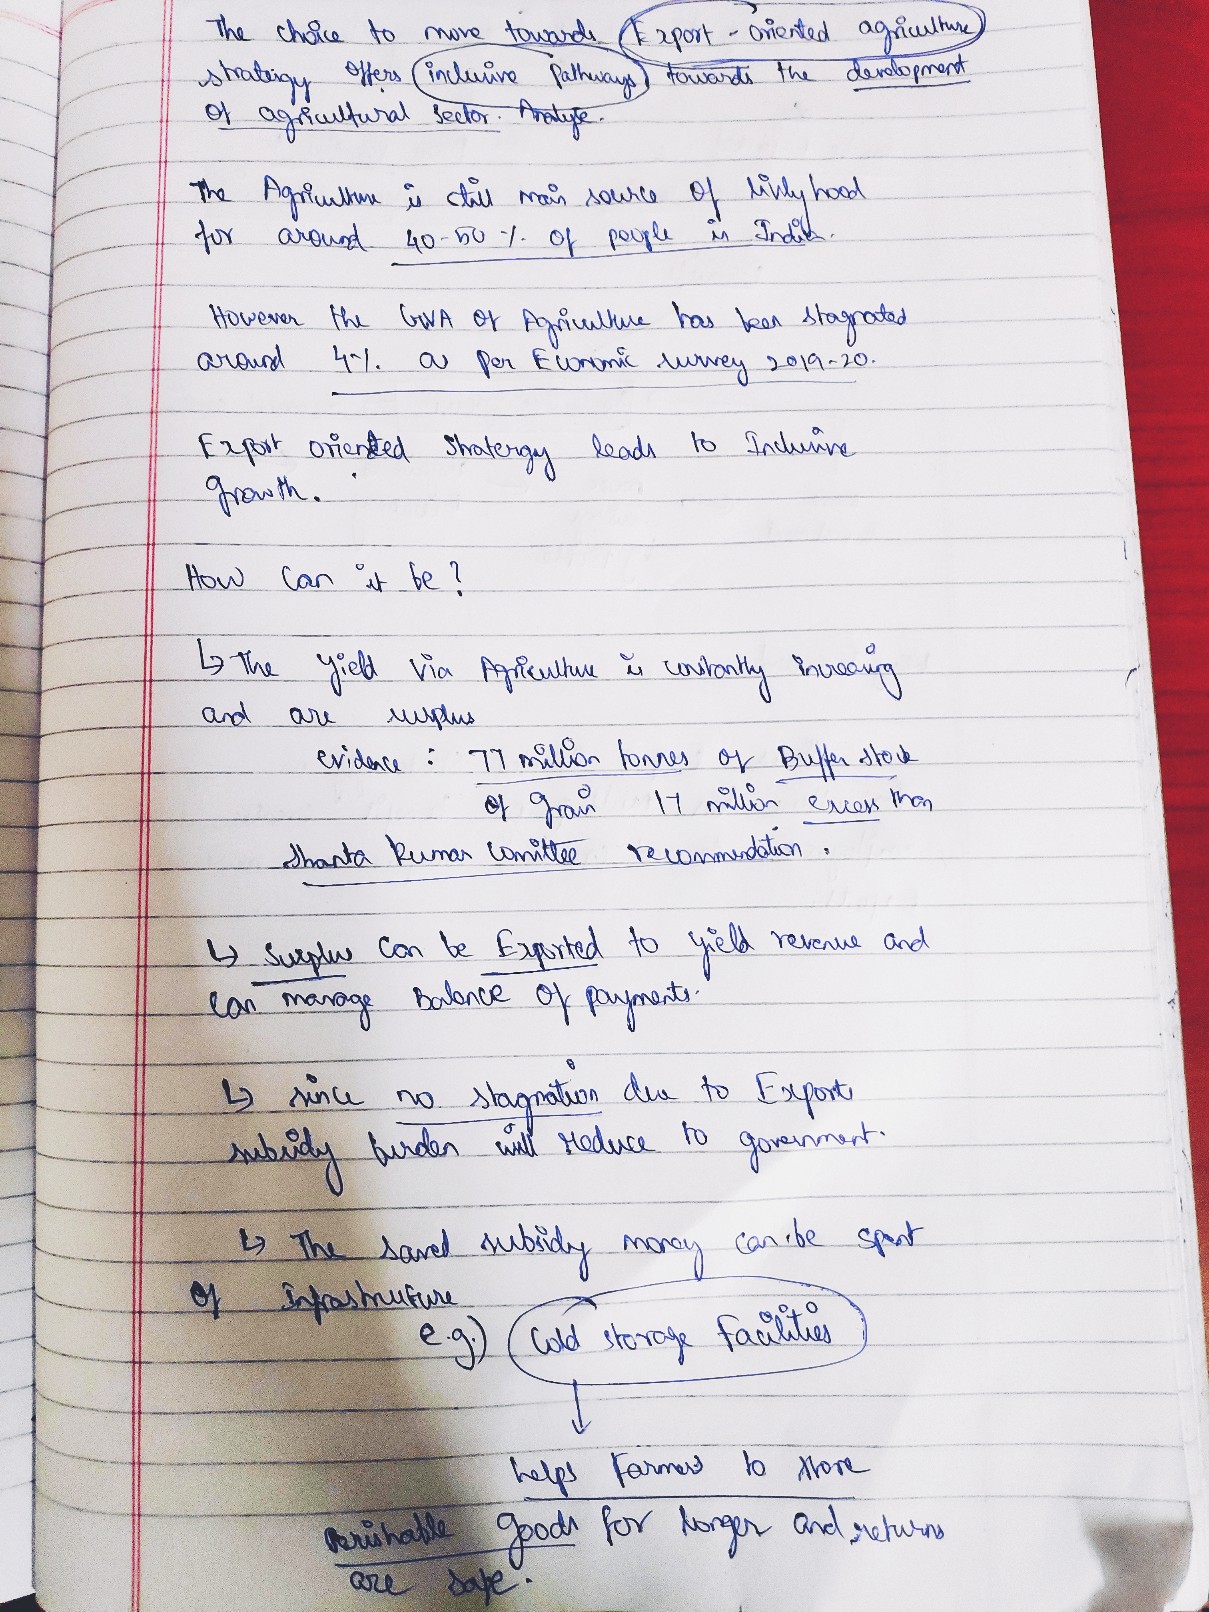 The choice to move towards Export-oriented agriculture
strateigy offers inclusive pathways towards the development
of agricultural sector. Analyse.
The Agriculture is still main source of livlyhood
for around 40-50 % of people in India.
However the GVA of Agriculture has been stagnated
around 4%. as per Economic survey 2019-20.
Export oriented stratergy leads to Inclusive
growth.
How can it be?
↳ The yield via Agriculture is constantly increasing
and are surplus
evidence : 77 million tonnes of Buffer stock
of grain 17 million excess than
Shanta Kumar Comittee recommendation.
↳ Surplus can be Exported to yield revenue and
can manage Balance of payments.
↳ since no stagnation due to Export,
subsidy burden will reduce to government.
↳ The saved subsidy money can be spent
of Infrastructure
e.g.) Cold storage facilities
helps farmers to store
Perishable goods for longer and returns
are safe.